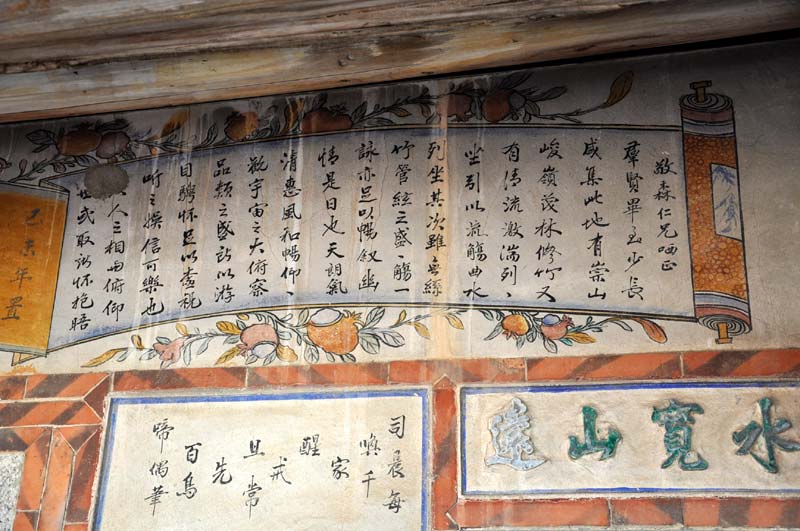 敬森仁兄哂正
群賢畢至少長
咸集此地有崇山
峻嶺茂林修竹又
有清流激湍列、
坐引以流觴曲水
列坐其次雖無絲
竹管絃之盛一觴一
詠亦足以暢叙幽
情是日也天朗氣
清惠風和暢仰、
觀宇宙之大俯察
品類之盛所以游
目騁怀足以極視
听之娛信可樂也
人之相與俯仰
世或取諸怀抱晤
己未年置
水寬山遠
司晨每
喚千
家
醒
戒
旦常
先
百鳥
啼偶筆